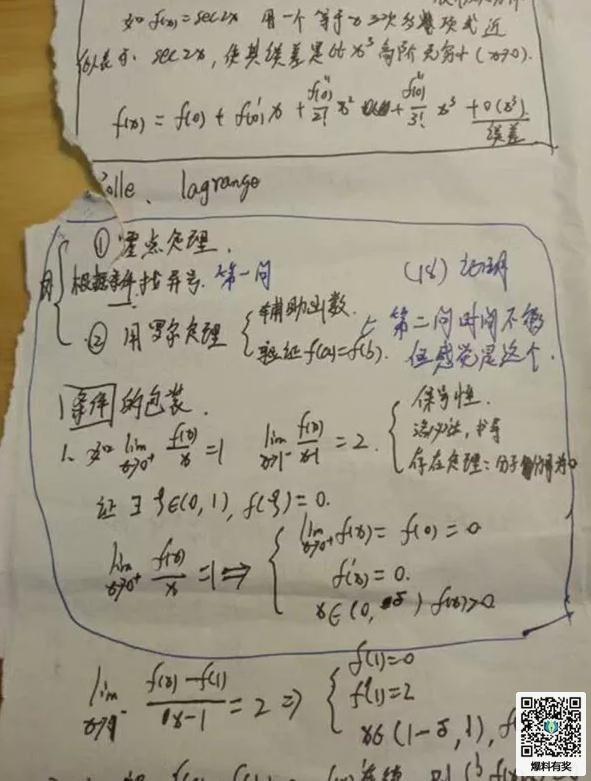 如 f(x)=sec2x 用一个等于 x 三次多项式近
似表示 sec2x, 使其误差是比 x³ 高阶无穷小 (x→0).
f(x) = f(0) + f'(0)x + f''(0)/2! x² + f'''(0)/3! x³ + o(x³)
误差
olle、lagrange
① 零点定理.
根据条件找异号. 第一问
(18) 证明
② 用罗尔定理 { 辅助函数. 验证 f(a)=f(b).
第二问时间不够
但感觉是这个.
条件 的包装.
1、如 lim x→0⁺ f(x)/x =1 lim x→1⁻ f(x)/x-1 = 2. { 保号性. 洛必达, 求导 存在定理: 分子
证 ∃ ξ∈(0,1), f(ξ)=0.
lim x→0⁺ f(x)/x =1 ⇒ { lim x→0⁺ f(x) = f(0) = 0
f'(x)=0.
x∈(0, δ) f(x)>0
lim x→1⁻ f(x)-f(1)/x-1 = 2 ⇒ { f(1)=0
f'(1)=2
x∈(1-δ,1), f
爆料有奖